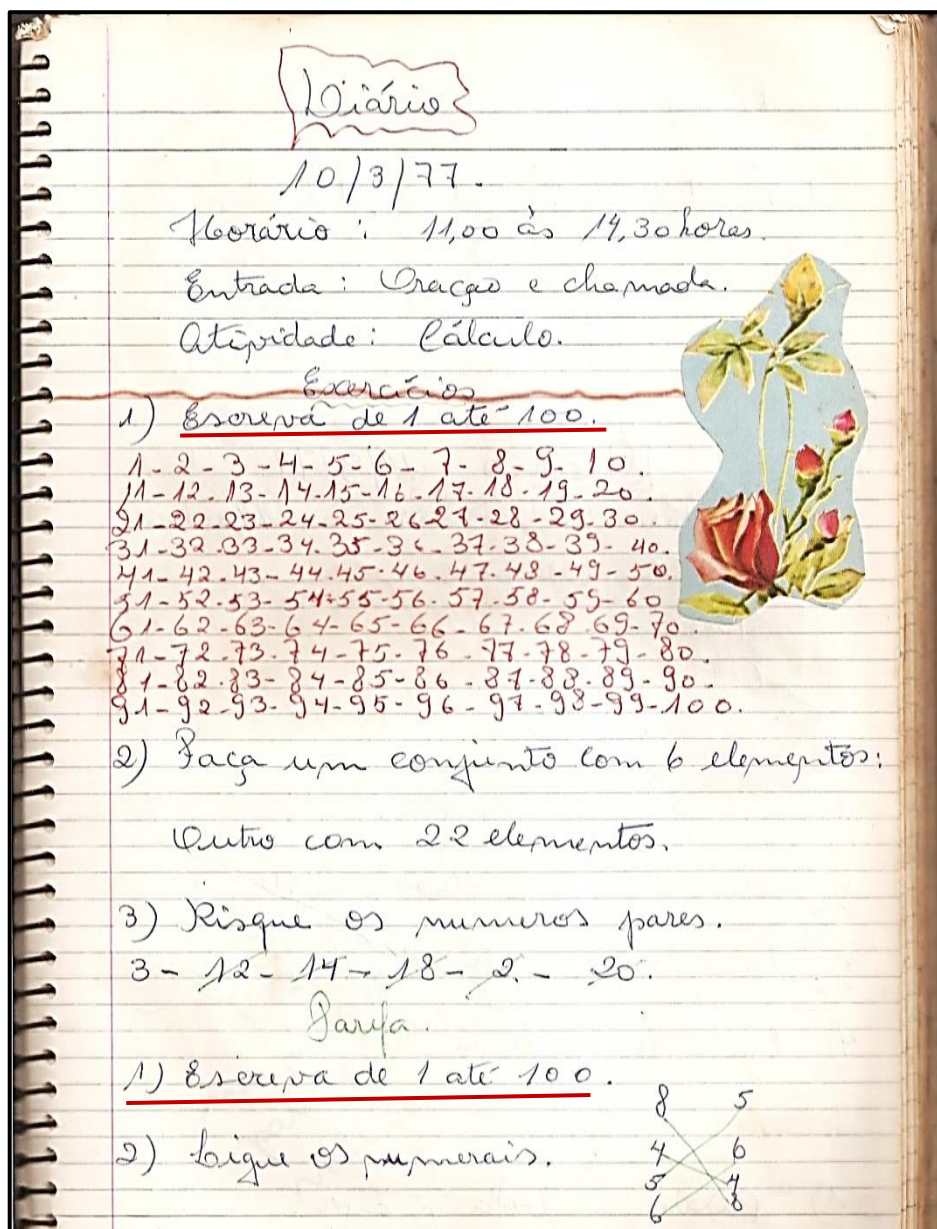 Diário
10/3/77.
Horário: 11,00 às 14,30 horas.
Entrada: Oração e chamada.
Atividade: Cálculo.
Exercícios
1) Escreva de 1 até 100.
1-2-3-4-5-6-7-8-9-10.
11-12-13-14-15-16-17-18-19-20.
21-22-23-24-25-26-27-28-29-30.
31-32-33-34-35-36-37-38-39-40.
41-42-43-44-45-46-47-48-49-50.
51-52-53-54-55-56-57-58-59-60
61-62-63-64-65-66-67-68-69-70.
71-72-73-74-75-76-77-78-79-80.
81-82-83-84-85-86-87-88-89-90.
91-92-93-94-95-96-97-98-99-100.
2) Faça um conjunto com 6 elementos:
Outro com 22 elementos.
3) Risque os numeros pares.
3-12-14-18-2-20.
Tarefa.
1) Escreva de 1 até 100.
2) Ligue os numerais.
8 5
4 6
5 4
6 8